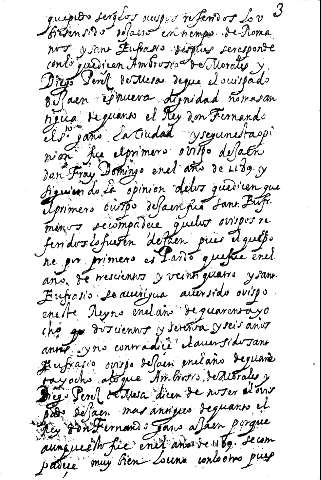 3
que pudo ser q los ovispos referidos lo v
biesen sido de Jaen en tiempo de Roma
nos y sant Eufrasio despues se responde
con lo que dicen Ambrosio de Morales y
Diego Perez de Mesa de que el ovispado
de Jaen es nueva dignidad no mas an
tigua de quanto el Rey don Fernando
el sto gano la ciudad y segun esta opi
nion fue el primero ovispo de Jaen
don Fray Domingo en el año de 1189 y
siguiendo la opinion de los que dicen que
el primero ovispo de Jaen fue sant Eufr
menos se compadece que los ovispos re
feridos lo fuesen de Jaen pues el que po
ne por primero es Pardo que fue en el
año de trescientos y veinti quatro y sant
Eufrasio se averigua aver sido ovispo
en este Reyno en el año de quarenta yo
cho que doscientos y setenta y seis años
antes y no contradice el aver sido sant
Eufrasio ovispo de Jaen en el año de quare
ta y ocho a lo que Ambrosio de Morales y
Diego Perez de Mesa dicen de no ser el ovis
pado de Jaen mas antiguo de quanto el
Rey don Fernando gano a Jaen porque
aunque esto fue en el año de 1189 se com
padece muy bien lo uno con lo otro pues